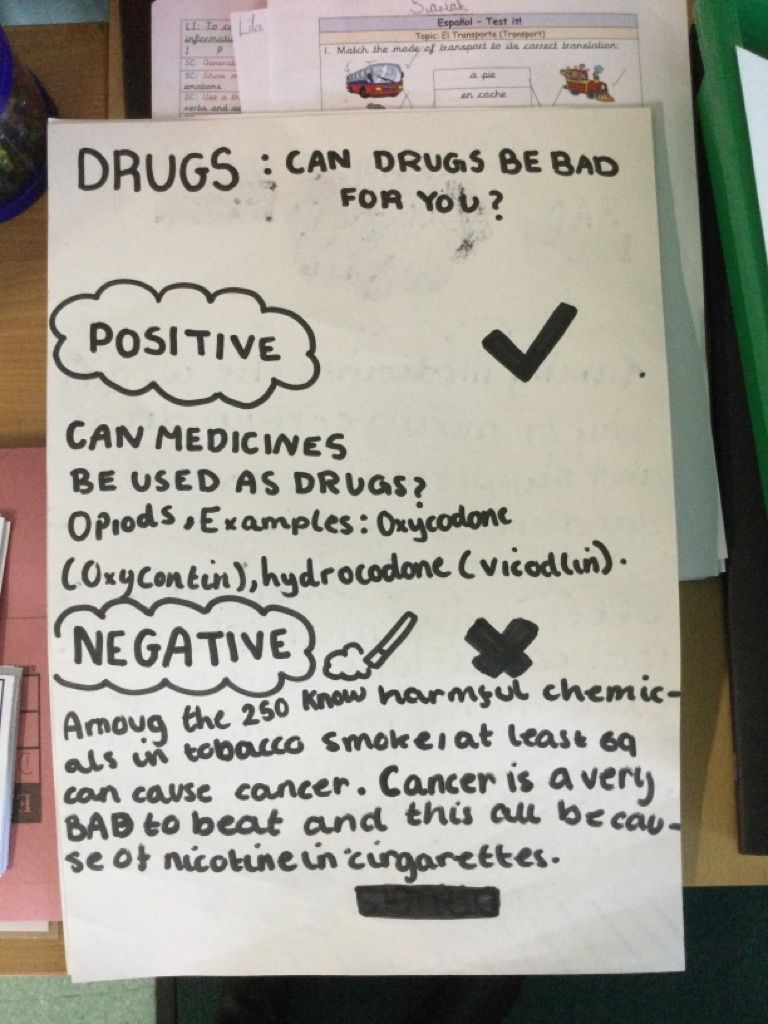 Sarah
Lila
LI: To co
informatio
SC: Genera
SC: Show m
emotions
SC: Use a th
verbs and ad
Español - Test it!
Topic: El Transporte (Transport)
1. Match the mode of transport to its correct translation:
a pie
en coche
DRUGS : CAN DRUGS BE BAD
FOR YOU?
POSITIVE
CAN MEDICINES
BE USED AS DRUGS?
Opiods, Examples: Oxycodone
(Oxycontin), hydrocodone (vicodlin).
NEGATIVE
Amoug the 250 know harmful chemic-
als in tobacco smoke, at least 69
can cause cancer. Cancer is a very
BAD to beat and this all becau-
se of nicotine in cingarettes.